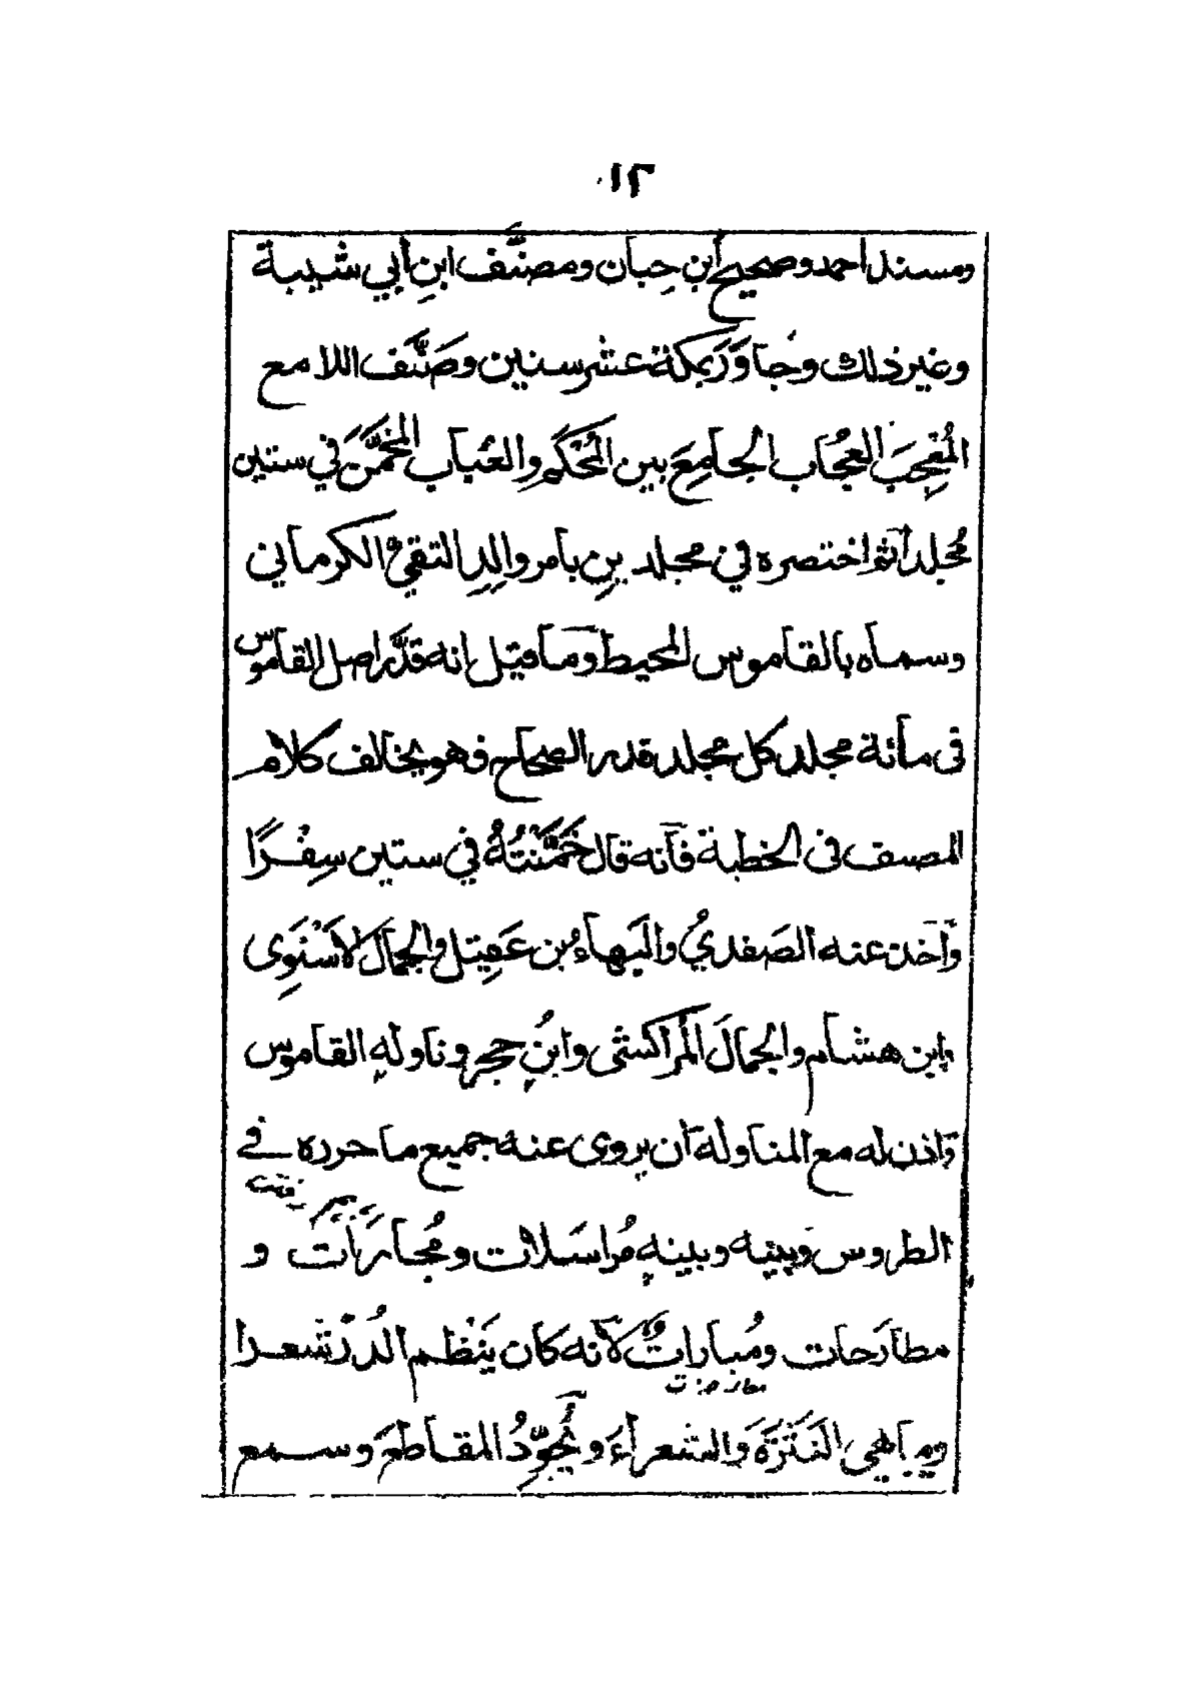 ١٢
ومسند احمد وصحيح أبن حِبان ومصنَّف ابنِ أبي شيبة
وغير ذلك وجاوَرَ بمكة عشر سنين وصَنَّف اللامع
المُعْجِبَ العُجاب الجامِعَ بين المُحْكَمِ والعُباب المخَمَّنَ في ستين
مُجلدًا ثم اختصره في مجلد ينِ بامر والِدِ التقيّ الكرماني
وسماه بالقاموس المحيط وما قيل إنه قدَّر اصل القاموس
فى مائة مجلد كل مجلد قدر الصحاح فهو يخالف كلام
المصنف فى الخطبة فانه قال خَمَّنْتُهُ في ستين سِفْرًا
وأخذ عنه الصَفديُ والبَهاءُ بن عَقِيل والجمالُ الأسْنَوِى
وابن هشام والجمالُ المُراكشى وابنُ حجر وناوله القاموس
وأذن له مع المناولة أن يروى عنه جميع ما حرره في
الطروس وبينه وبينه مُراسَلات ومُجارَاتٌ و
مطارَحات ومُباراتٌ لأنه كان يَنْظم الدُرّ شعرا
ويباهي النَثَرَةَ والشعراءَ ويُجَوِّدُ المقاطعَ وسمع